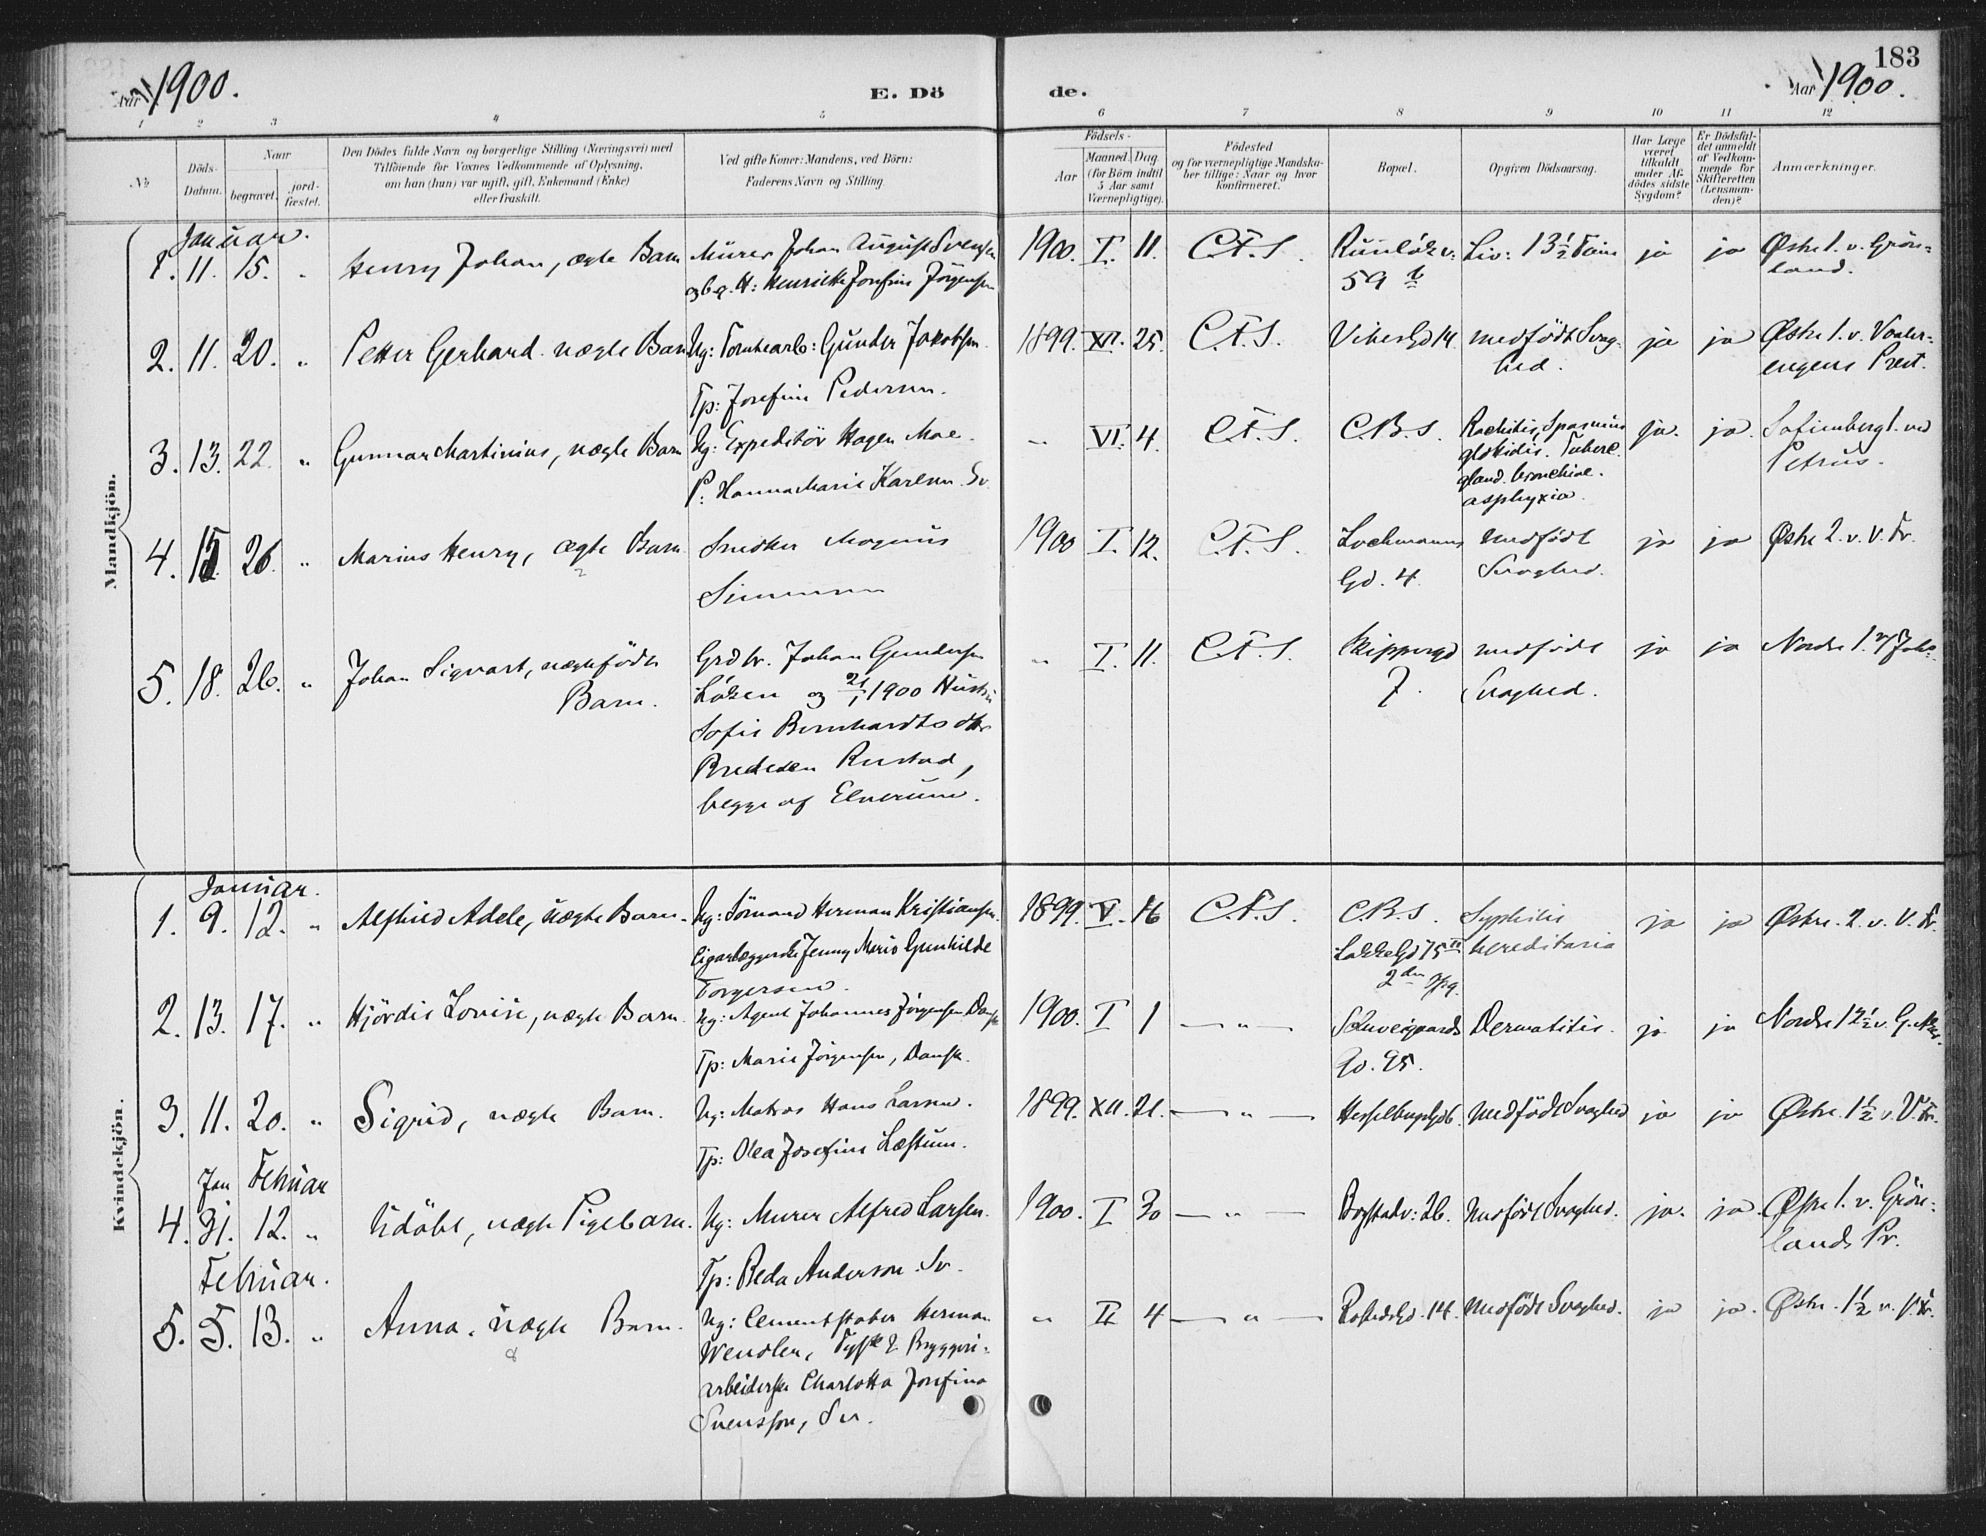 183
Aar 1900.
E. Dö
de.
Aar 1900.
1 2 3 4 5 6 7 8 9 10 11 12
№
Döds-
Datum.
Naar
begravet.
jord-
fæstet.
Den Dödes fulde Navn og borgerlige Stilling (Næringsvei) med
Tilföiende for Voxnes Vedkommende af Oplysning,
om han (hun) var ugift, gift, Enkemand (Enke)
eller fraskilt.
Ved gifte Koner: Mandens, ved Börn:
Faderens Navn og Stilling
Födsels-
Aar
Maaned. Dag.
(for Börn indtil
5 Aar samt
Værnepligtige).
Födested
og for værnepligtige Mandska-
ber tillige: Naar og hvor
konfirmeret.
Bopæl.
Opgiven Dödsaarsag.
Har Læge
været
tilkaldt
under Af-
dödes sidste
Sygdom?
Er Dödsfal-
det anmeldt
af Vedkom-
mende for
Skifteretten
(Lensman-
den)?
Anmærkninger.
Mandkjön.
Januar.
1. 11. 15. " Henry Johan, ægte Barn Murer Johan August Svensen 1900. I. 11. C.F.S. Liv: 13½ Time ja ja Østre 1. v. Grön-
og H: Henriette Josefine Jörgensen 59 land.
2. 11. 20. " Petter Gerhard uægte Barn Ug: Tomtearb: Gunder Jakobsen 1899. XI. 25. C.F.S. Vibesgd 14 medfödt Svag- ja ja Østre 1. v. Vaaler-
Tp: Josefine Pedersen. hed. engens Prest.
3. 13. 22. " Gunnar Martinius, uægte Barn Ug: Expeditör Hagen Moe. " VI. 4. C.F.S. C.B.S. Rachitis, Spasmus ja. ja. Sofienberg 1. ved
P: Hanna Marie Karlsen Sv. glottidis. Tuberc. Petrus.
gland. bronchiae.
asphyxia.
4. 15. 26. " Marius Henry, ægte Barn Snedker Magnus 1900 I. 12. C.F.S. Lochmanns medfödt ja ja Østre 2. v. V. Fr.
Simensen Gd. 4. Svaghed.
5. 18. 26. " Johan Sigvart, uægtefödt Grdbr. Johan Gundersen " I. 11. C.F.S. Skippergd medfödt ja ja Nordre 1. v/ Joh.
Barn. Löken og 21/1 1900 Hustru 7. Svaghed.
Sofie Bernhardtsdtr
Bredesen Rustad,
begge af Elverum.
Kvindekjön.
Januar.
1. 9. 12. " Alfhild Adele, uægte Barn. Ug: Sömand Herman Kristiansen. 1899. V. 16 C.F.S. C.B.S. Syphilis ja ja Østre. 2. v. V. Fr.
Jenny Marie Gunhilde Lakkegd 75 II hereditaria
Torgersen. 2den Opg.
2. 13. 17. " Hjördis Lovise, uægte Barn. Ug: Agent Johannes Jörgensen Dansk 1900. I 1 — " — Schweigaards Dermatitis. ja ja Nordre 1½ v.
Tp: Marie Jörgensen, Dansk. Gd. 95.
3. 11. 20. " Sigrid, uægte Barn. Ug: Matros Hans Larsen. 1899. XII. 21. — " — Hesselbergsgd 6. medfödt Svaghed ja ja Østre 1½ v. V. Fr.
Tp: Olea Josefine Læstum.
Jan Februar
4. 31. 12. " Udöbt, uægte Pigebarn. Ug: Murer Alfred Larsen. 1900. I 30 — " — Bogstadv: 26. Medfödt Svaghed. ja. ja. Østre 1. v. Grön-
Tp: Beda Anderson. Sv. lands Pr.
Februar.
5. 5. 13. " Anna, uægte Barn. Ug: Cementstöber Herman " II 4 — " — Rostedsgd. 14. Medfödt Svaghed. ja ja. Østre. 1½ v. V. Fr.
Wendler, Tysk & Bryggeri-
arbeiderske Charlotta Josefina
Svensson, Sv.